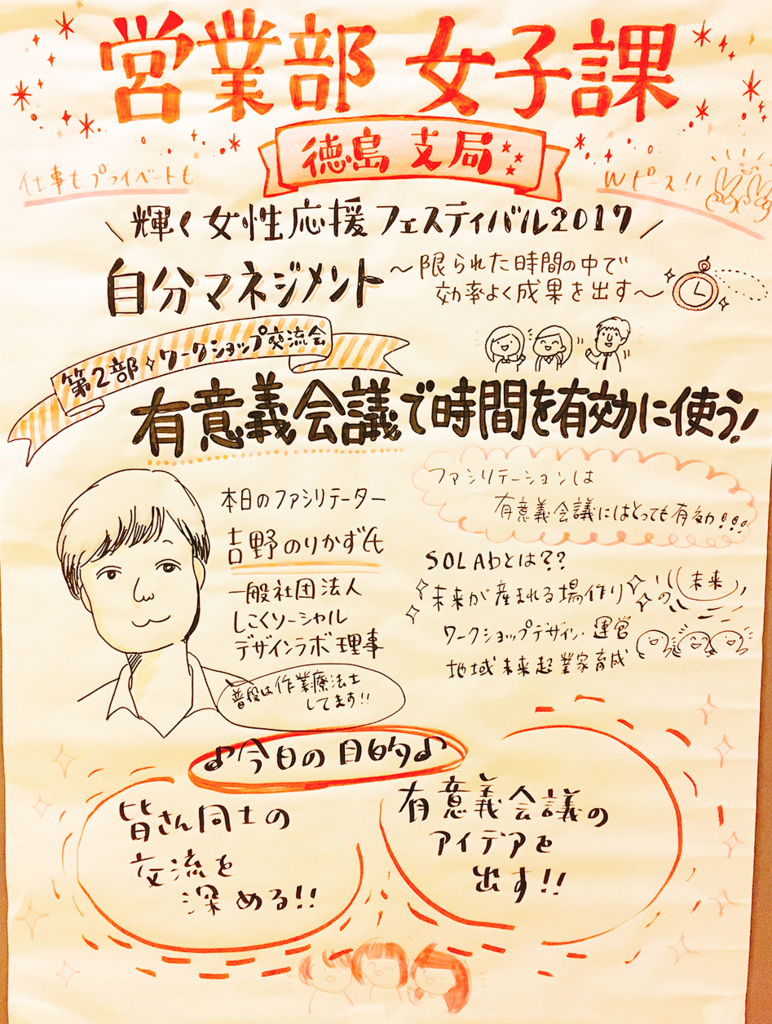 営業部 女子課
徳島支局
仕事もプライベートも
Wピース!!
輝く女性応援フェスティバル2017
自分マネジメント
〜限られた時間の中で
効率よく成果を出す〜
第2部 ワークショップ交流会
有意義会議で時間を有効に使う!
本日のファシリテーター
吉野のりかず氏
一般社団法人
しこくソーシャル
デザインラボ 理事
普段は作業療法士
してます!!
ファシリテーションは
有意義会議にはとっても有効!!!
SOLAbとは??
未来が産まれる場作り
未来の
ワークショップデザイン・運営
地域未来起業家育成
♪今日の目的♪
皆さん同士の
交流を
深める!!
有意義会議の
アイデアを
出す!!